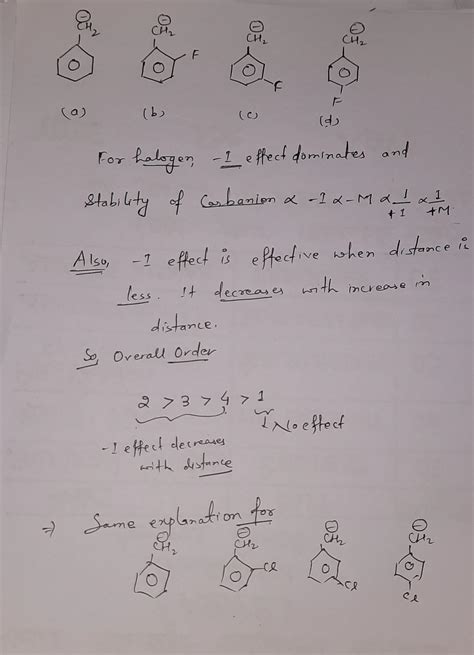 ⊖CH₂ ⊖CH₂ ⊖CH₂ ⊖CH₂
F
F
F
(a) (b) (c) (d)
For halogen, -I effect dominates and
Stability of Carbanion α -I α -M α 1/+I α 1/+M
Also, -I effect is effective when distance is
less. It decreases with increase in
distance.
So, Overall Order
2 > 3 > 4 > 1
↓ No effect
-I effect decreases
with distance
⇒ Same explanation for
⊖CH₂ ⊖CH₂ ⊖CH₂ ⊖CH₂
Cl
Cl
Cl